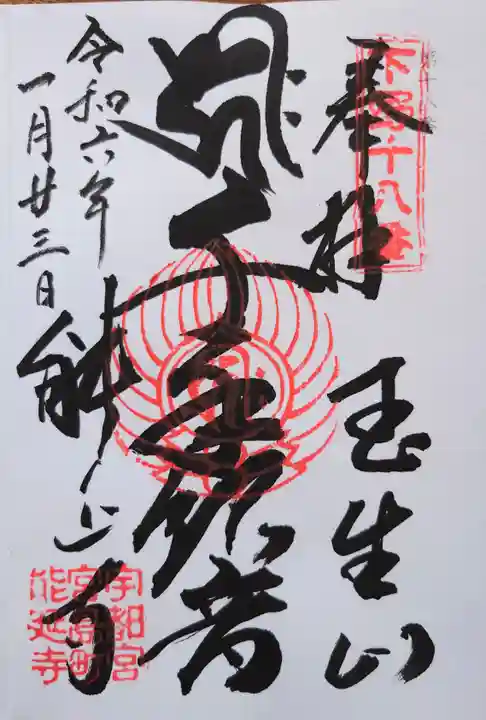 奉拝
玉生山
千手観音
令和六年
一月廿三日
能延寺
下野十八番
宇都宮
宮島町
能延寺